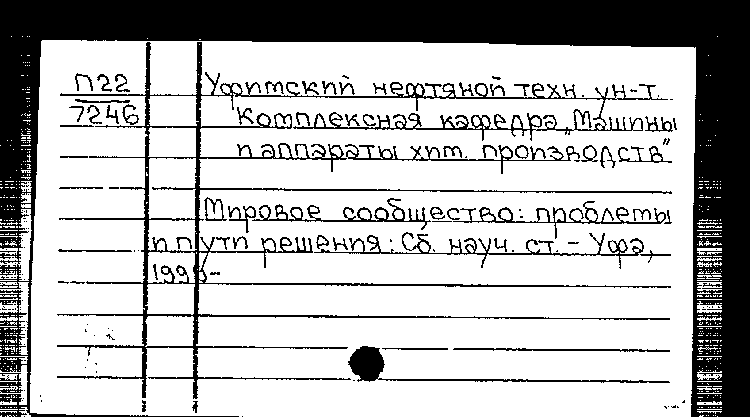 П22
7246
Уфимский нефтяной техн. ун-т.
Комплексная кафедра „Машины
и аппараты хим. производств"
Мировое сообщество: проблемы
и пути решения: Сб. науч. ст. - Уфа,